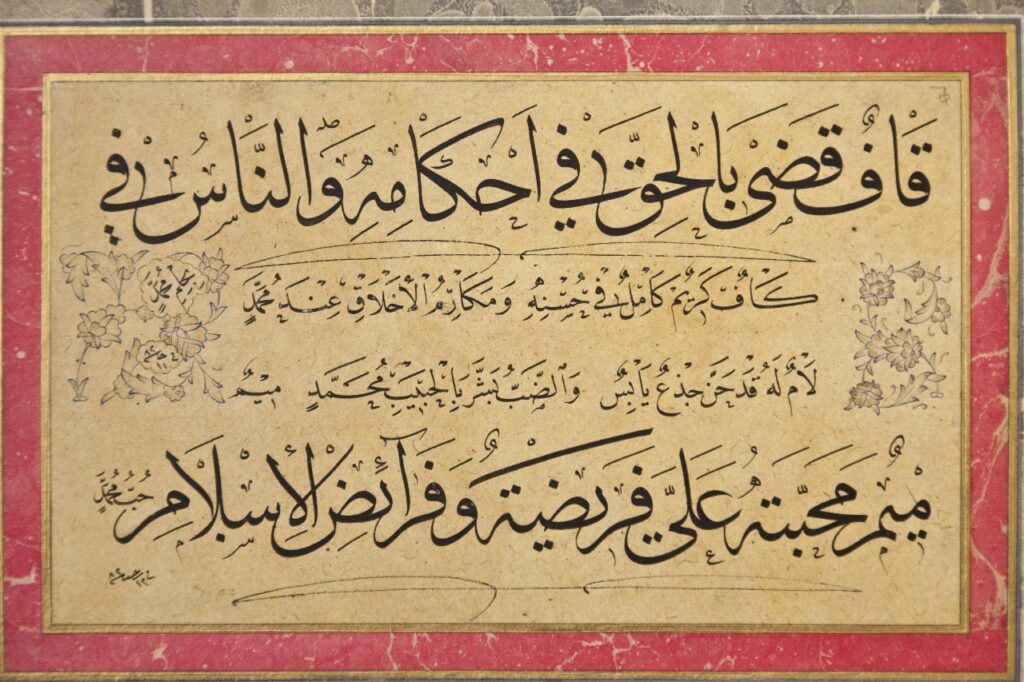 قَافٌ قَضٰى بِالْحَقِّ فِي اَحْكَامِهِ وَالنَّاسُ فِي
كَافٌ كَرِيمٌ كَامِلٌ فِي حُسْنِهِ وَمَكَارِمُ الْأَخْلَاقِ عِنْدَ مُحَمَّدٍ
لَامٌ لَهُ قَدْ حَنَّ جِذْعٌ يَابِسٌ وَالضَّبُّ بَشَّرَ بِالْحَبِيبِ مُحَمَّدٍ مِيمٌ
مِيمٌ مَحَبَّتُهُ عَلَيَّ فَرِيضَةٌ وَفَرَائِضُ الْإِسْلَامِ حُبُّ مُحَمَّدٍ